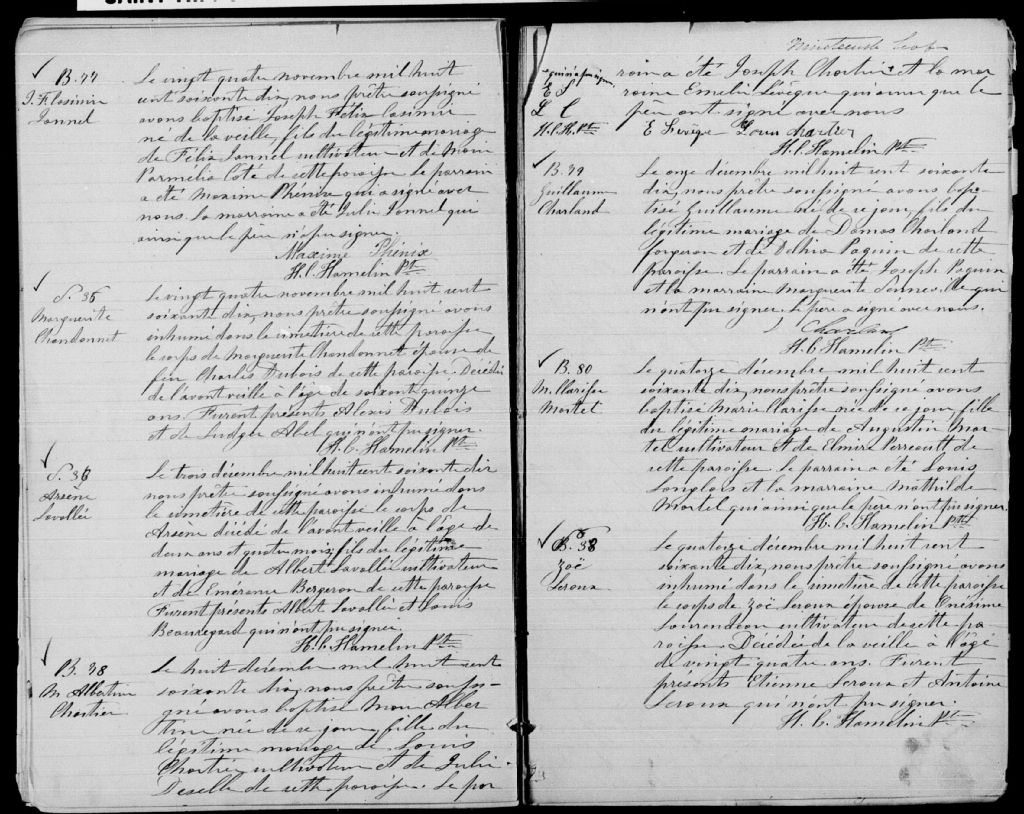 B. 77
J. F. Casimir
Jannel
Le vingt quatre novembre mil huit
cent soixante dix, nous prêtre soussigné
avons baptisé Joseph Félix Casimir
né de la veille, fils du légitime mariage
de Félix Jannel cultivateur et de Marie
Parmélia Coté de cette paroisse. Le parrain
a été Maxime Phénix qui a signé avec
nous. La marraine a été Julie Jannel qui
ainsi que le père n'a pu signer.
Maxime Phénix
H. C. Hamelin Ptre
S. 35
Marguerite
Chandonnet
Le vingt quatre novembre mil huit cent
soixante dix, nous prêtre soussigné avons
inhumé dans le cimetière de cette paroisse
le corps de Marguerite Chandonnet épouse de
feu Charles Dubois de cette paroisse. Décédée
de l'avant veille à l'âge de soixante quinze
ans. Furent présents Alexis Dubois
et de Ludger Abel qui n'ont pu signer.
H. C. Hamelin Ptre
S. 36
Arsène
Lavallée
Le trois décembre mil huit cent soixante dix
nous prêtre soussigné avons inhumé dans
le cimetière de cette paroisse le corps de
Arsène décédé de l'avant veille à l'âge de
deux ans et quatre mois, fils du légitime
mariage de Albert Lavallée cultivateur
et de Emerance Bergeron de cette paroisse
Furent présents Albert Lavallée et Louis
Beauregard qui n'ont pu signer.
H. C. Hamelin Ptre
B. 38
M. Albertine
Chartier
Le huit décembre mil huit cent
soixante dix, nous prêtre soussi-
gné avons baptisé Marie Alber
tine née de ce jour, fille du
légitime mariage de Louis
Chartier cultivateur et de Julie
Deselle de cette paroisse. Le par
Nineteenth leaf
L C
H. C. H. Ptre
rain a été Joseph Chartier et la mar
raine Emélie Lévêque qui ainsi que le
père ont signé avec nous
E Levêque Louis chartier
H. C. Hamelin Ptre
B. 79
Guillaume
Charland
Le onze décembre mil huit cent soixante
dix, nous prêtre soussigné avons bap-
tisé Guillaume né de ce jour, fils du
légitime mariage de Damas Charland
forgeron et de Delhia Paquin de cette
paroisse. Le parrain a été Joseph Paquin
et la marraine Marguerite qui
n'ont pu signer. Le père a signé avec nous.
Charland
H. C Hamelin Ptre
B. 80
M. Clarisse
Martel
Le quatorze décembre mil huit cent
soixante dix, nous prêtre soussigné avons
baptisé Marie Clarisse née de ce jour, fille
du légitime mariage de Augustin Mar-
tel cultivateur et de Elmire Perreault de
cette paroisse. Le parrain a été Louis
Langlois et la marraine Mathilde
Martel qui ainsi que le père n'ont pu signer.
H. C. Hamelin Ptre
S. 38
Zoë
Leroux
Le quatorze décembre mil huit cent
soixante dix, nous prêtre soussigné avons
inhumé dans le cimetière de cette paroisse
le corps de Zoë Leroux épouse de Onésime
cultivateur de cette pa
roisse. Décédée de la veille à l'âge
de vingt quatre ans. Furent
présents Etienne Leroux et Antoine
Leroux qui n'ont pu signer.
H. C. Hamelin Ptre